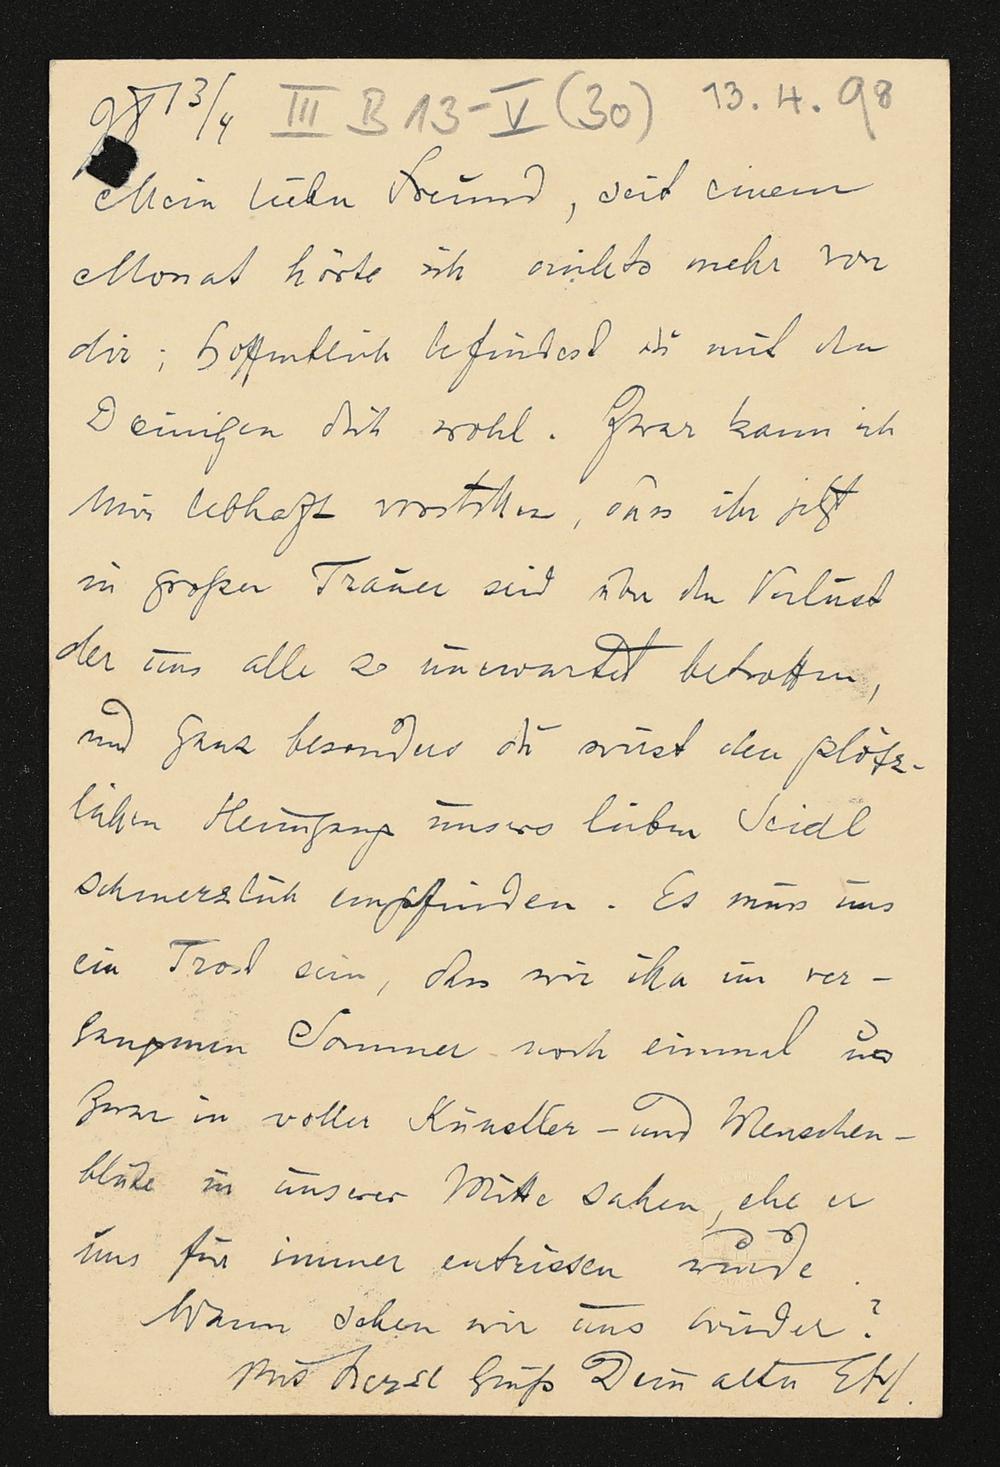 98 13/4 III B 13-V (30) 13.4.98
Mein lieber Freund, seit einem
Monat hörte ich nichts mehr von
dir; hoffentlich befindest du mit den
Deinigen dich wohl. Zwar kann ich
mir lebhaft vorstellen, dass ihr jetzt
in großer Trauer seid über den Verlust
der uns alle so unerwartet betroffen,
und ganz besonders du wirst den plötz-
lichen Heimgang unsers lieben Seidl
schmerzlich empfinden. Es muss uns
ein Trost sein, dass wir ihn im ver-
gangenen Sommer noch einmal und
zwar in voller Künstler- und Menschen-
blüte in unserer Mitte sahen, ehe er
uns für immer entrissen wurde.
Wann sehen wir uns wieder?
Mit herzl Gruß Dein alter